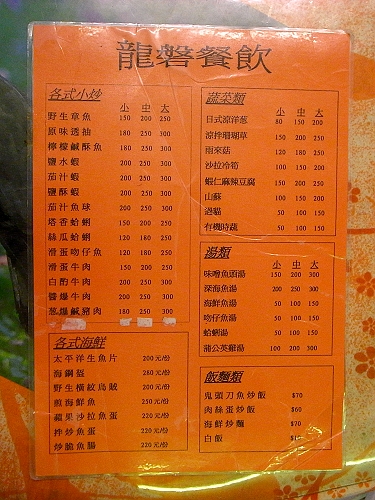 龍磐餐飲
各式小炒
小 中 大
野生章魚 150 200 250
原味透抽 180 250 300
檸檬鹹酥魚 180 250 300
鹽水蝦 200 250 300
茄汁蝦 200 250 300
鹽酥蝦 200 250 300
茄汁魚球 200 250 300
塔香蛤蜊 150 200 250
絲瓜蛤蜊 120 180 250
滑蛋吻仔魚 120 180 250
滑蛋牛肉 150 200 250
白酌牛肉 200 250 300
醬爆牛肉 200 250 300
蔥爆鹹豬肉 180 250 300
各式海鮮
太平洋生魚片 200元/份
海鋼盔 280元/份
野生橫紋烏賊 200元/份
煎海鮮魚 250元/份
蘋果沙拉魚蛋 220元/份
拌炒魚蛋 220元/份
炒脆魚腸 220元/份
蔬菜類
小 中 大
日式涼洋蔥 80 150 200
涼拌珊瑚草 150 200 250
雨來菇 120 180 250
沙拉冷筍 100 150 200
蝦仁麻辣豆腐 150 200 250
山蘇 100 150 200
過貓 50 100 150
有機時蔬 50 100 150
湯類
小 中 大
味噌魚頭湯 150 200 300
深海魚湯 200 250 300
海鮮魚湯 50 100 150
吻仔魚湯 50 100 150
蛤蜊湯 50 100 150
蒲公英雞湯 100 200 300
飯麵類
鬼頭刀魚炒飯 $70
肉絲蛋炒飯 $60
海鮮炒麵 $70
白飯 $10